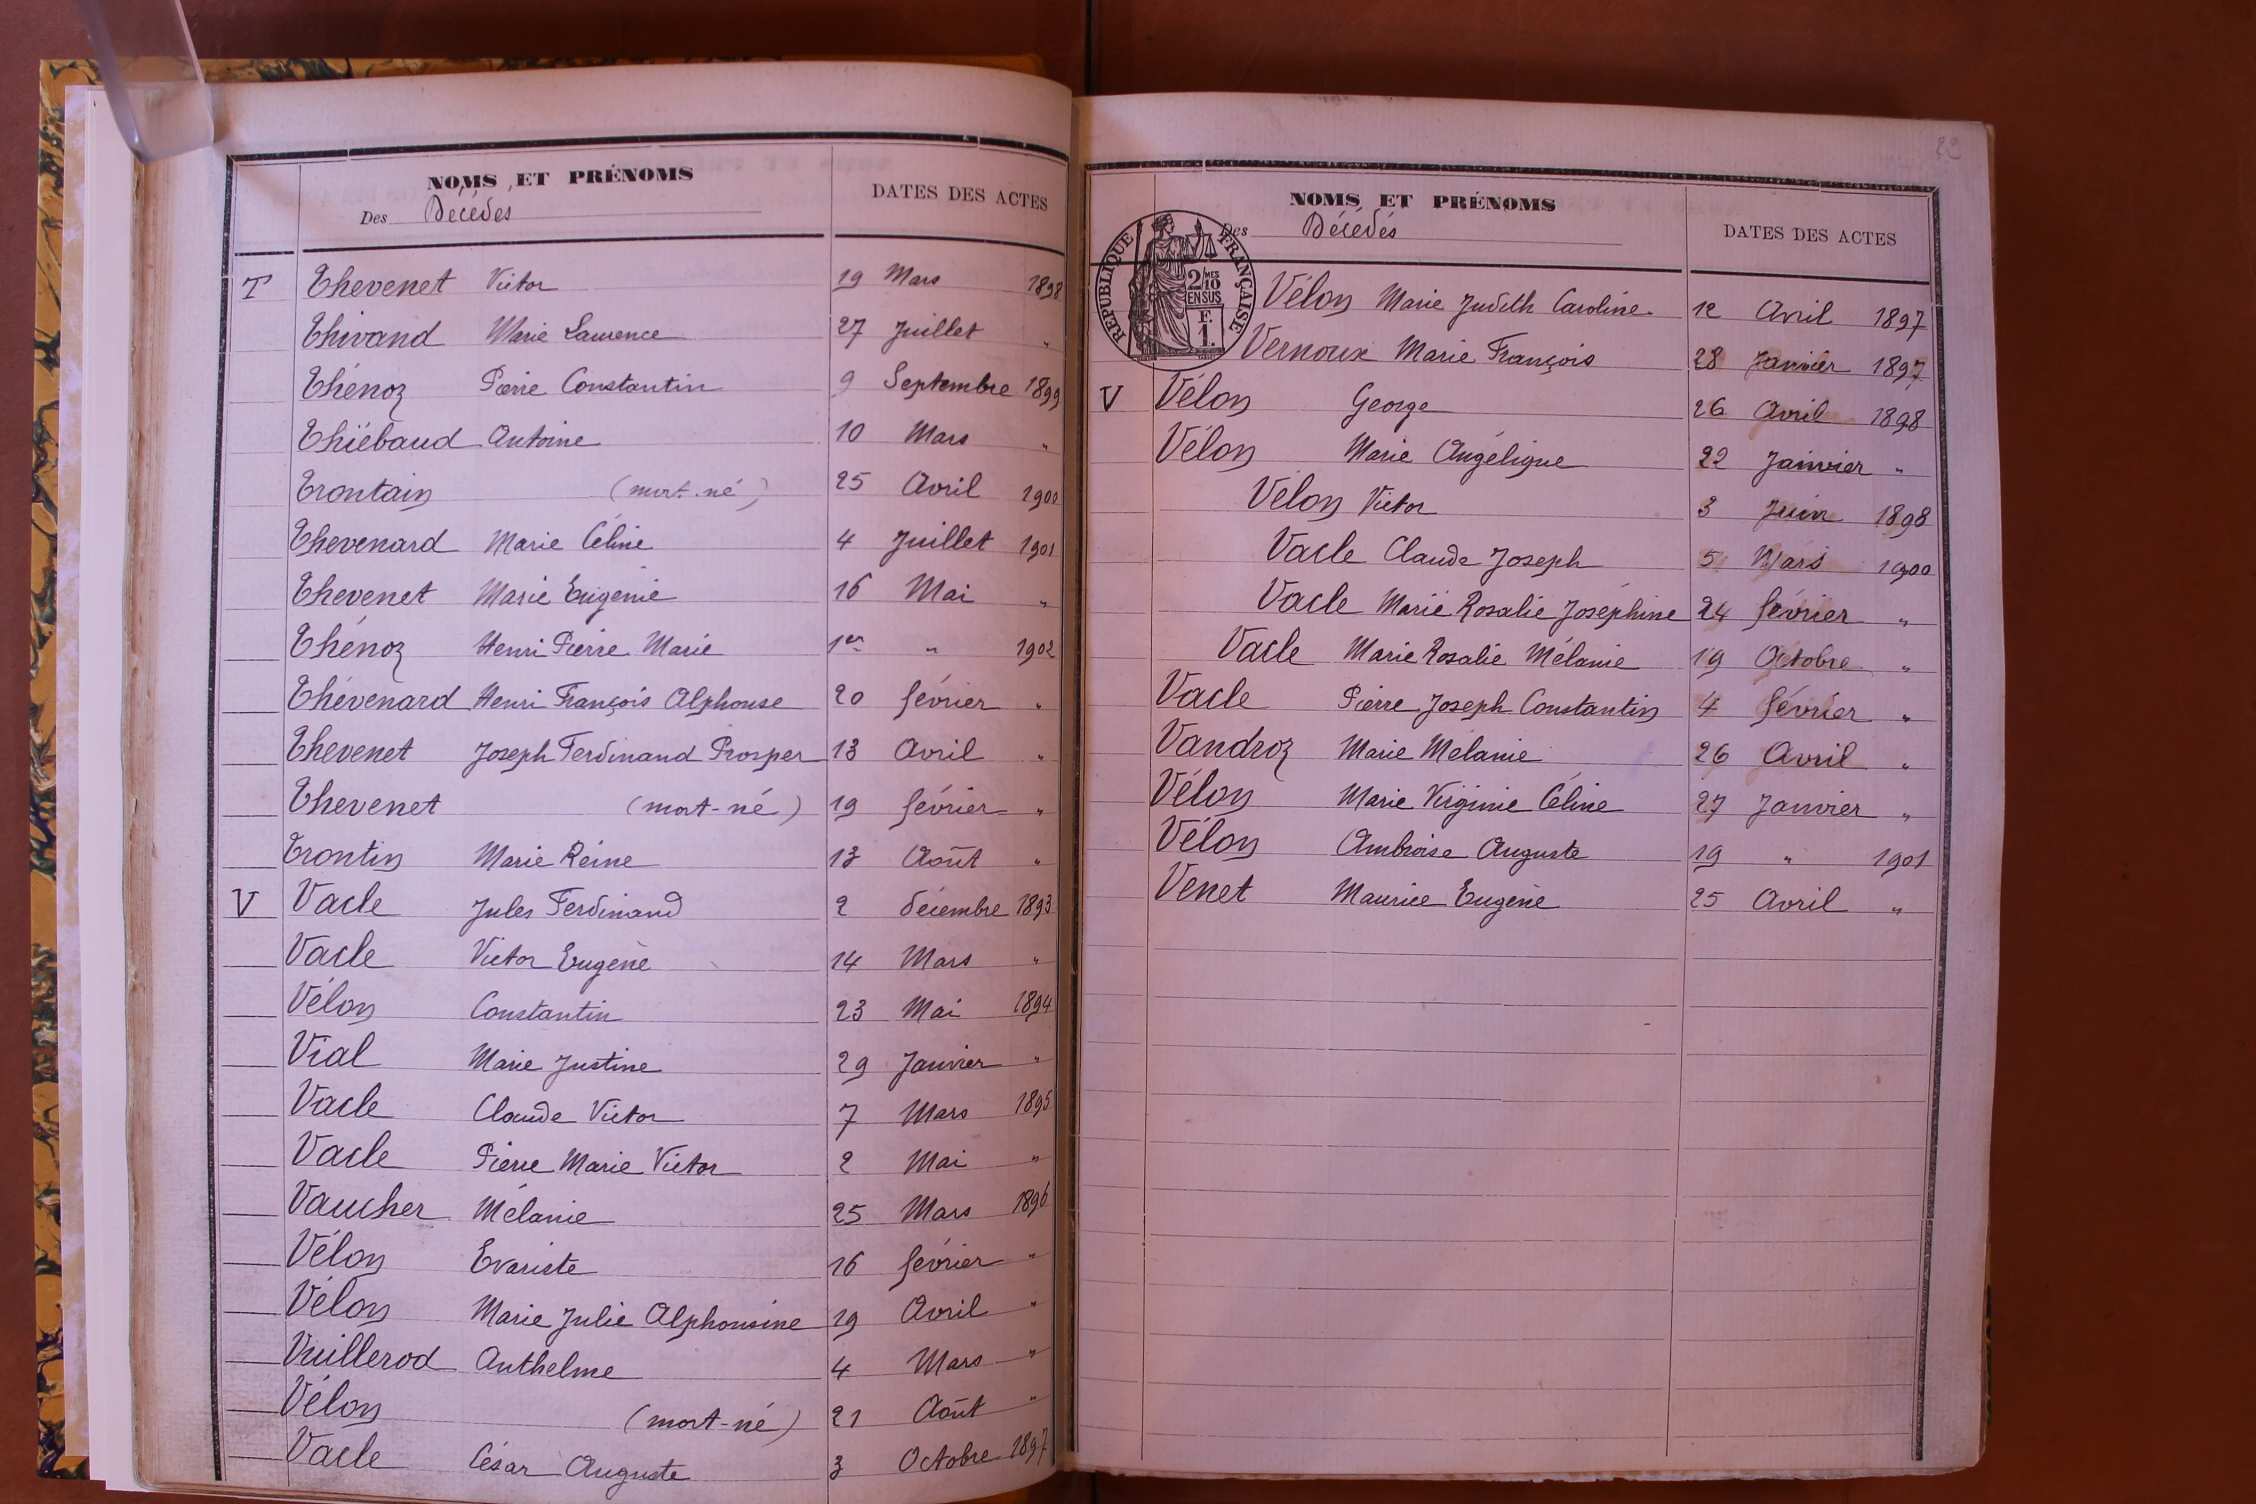 NOMS ET PRÉNOMS
Des Décédés
DATES DES ACTES
T Thevenet Victor 19 Mars 1898
Thivand Marie Laurence 27 Juillet "
Thénoz Pierre Constantin 9 Septembre 1899
Thiébaud Antoine 10 Mars "
Trontain (mort-né) 25 Avril 1900
Thevenard Marie Céline 4 Juillet 1901
Thevenet Marie Eugénie 16 Mai "
Thénoz Henri Pierre Marie 1er " 1902
Thévenard Henri François Alphonse 20 février "
Thevenet Joseph Ferdinand Prosper 13 Avril "
Thevenet (mort-né) 19 février "
Trontin Marie Reine 13 Août "
V Vacle Jules Ferdinand 2 décembre 1893
Vacle Victor Eugène 14 Mars "
Vélon Constantin 23 Mai 1894
Vial Marie Justine 29 Janvier "
Vacle Claude Victor 7 Mars 1895
Vacle Pierre Marie Victor 2 Mai "
Vaucher Mélanie 25 Mars 1896
Vélon Evariste 16 février "
Vélon Marie Julie Alphonsine 19 Avril "
Vuillerod Anthelme 4 Mars "
Vélon (mort-né) 21 Août "
Vacle César Auguste 3 Octobre 1897
22
NOMS ET PRÉNOMS
Des Décédés
DATES DES ACTES
RÉPUBLIQUE FRANÇAISE
2/10 MES
EN SUS
F.
1.
Vélon Marie Judith Caroline 12 Avril 1897
Vernoux Marie François 28 Janvier 1897
V Vélon George 26 Avril 1898
Vélon Marie Angélique 22 Janvier "
Vélon Victor 3 Juin 1898
Vacle Claude Joseph 5 Mars 1900
Vacle Marie Rosalie Joséphine 24 février "
Vacle Marie Rosalie Mélanie 19 Octobre "
Vacle Pierre Joseph Constantin 4 février "
Vandroz Marie Mélanie 26 Avril "
Vélon Marie Virginie Céline 27 Janvier "
Vélon Ambroise Auguste 19 " 1901
Venet Maurice Eugène 25 Avril "